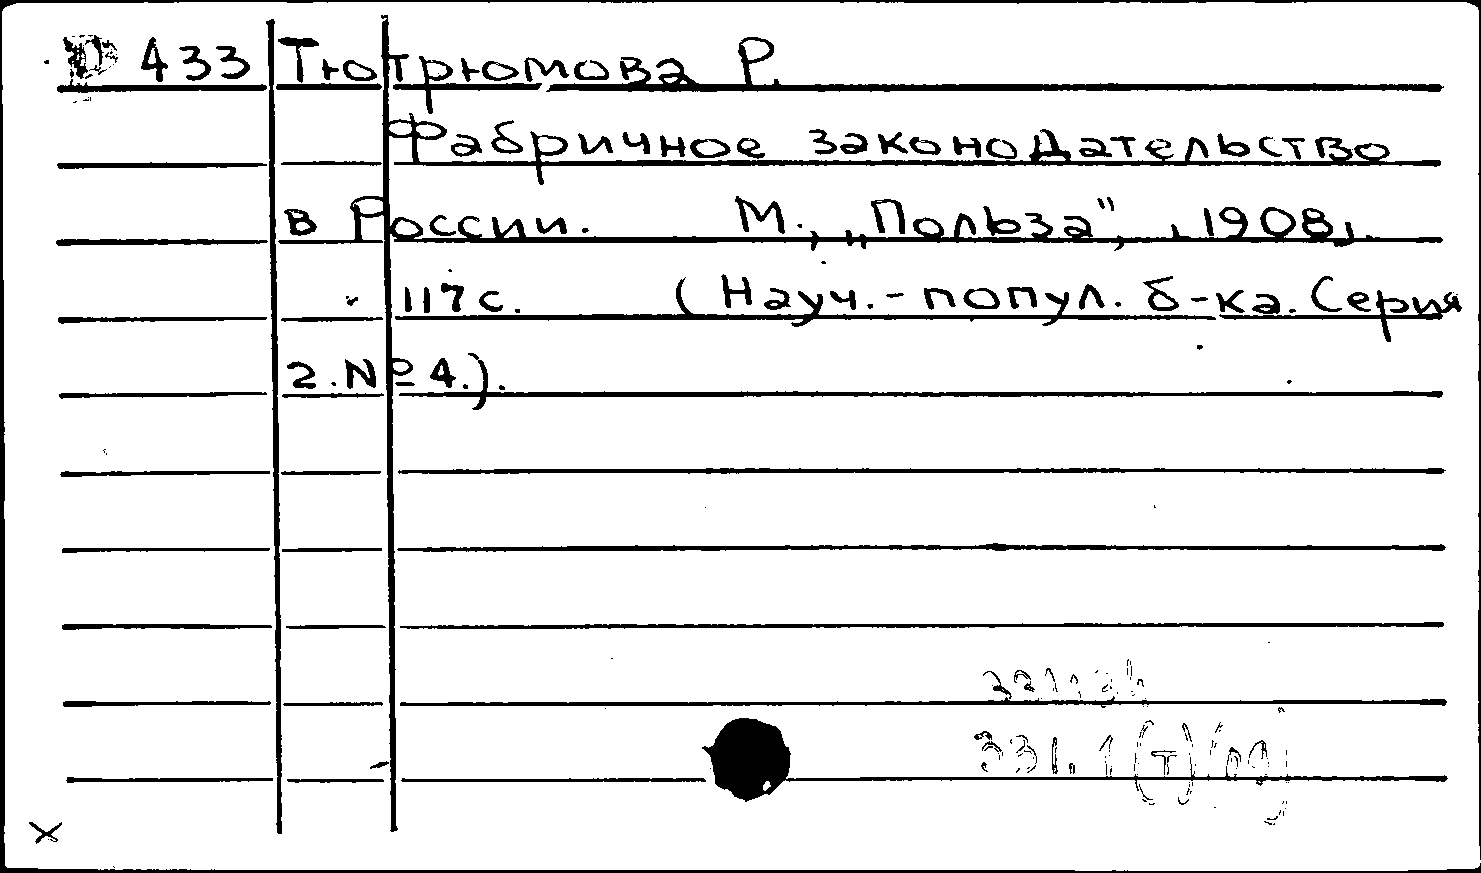 D 433 Тютрюмова Р.
Фабричное законодательство
в России. М., „Польза", 1908,
117 с. (Науч.-попул. б-ка. Серия
2. № 4.).
331.1 (Т)